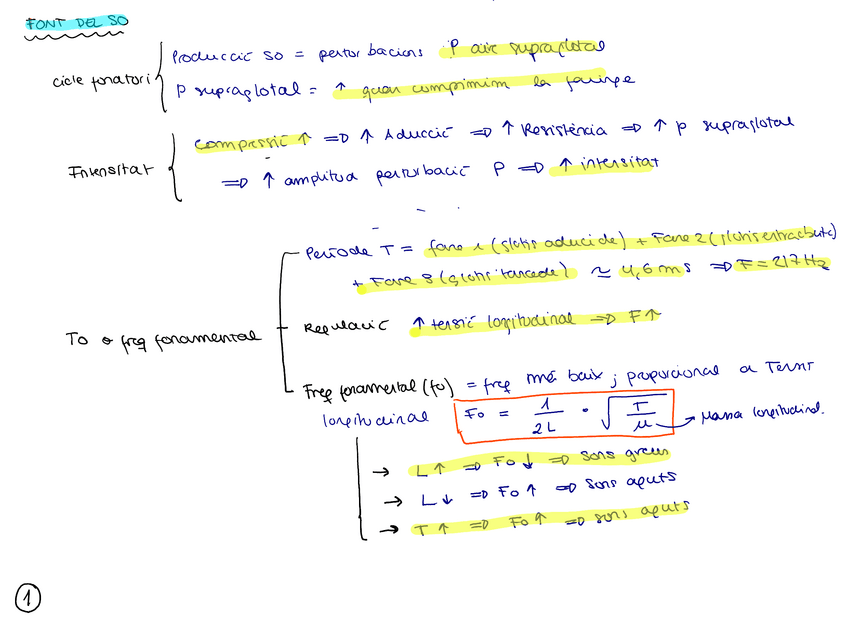 FONT DEL SO
cicle fonatori
Producció so = pertorbacions P aire supraglotal
P supraglotal = ↑ quan comprimim la faringe
Intensitat
Compressió ↑ ⇒ ↑ Aducció ⇒ ↑ Resistència ⇒ ↑ P supraglotal
⇒ ↑ amplitud pertorbació P ⇒ ↑ intensitat
To o freq fonamental
Període T = fase 1 (glotis aducide) + Fase 2 (glotis
+ Fase 3 (glotis tancade) ≈ 4,6 ms ⇒ F = 217 Hz
Regulació ↑ tensió longitudinal ⇒ F↑
Freq fonamental (fo) = freq més baix; proporcional a Tensió
longitudinal Fo = 1/2L · √(T/μ) → Massa longitudinal.
→ L↑ ⇒ Fo↓ ⇒ sons greus
→ L↓ ⇒ Fo↑ ⇒ sons aguts
→ T↑ ⇒ Fo↑ ⇒ sons aguts
1